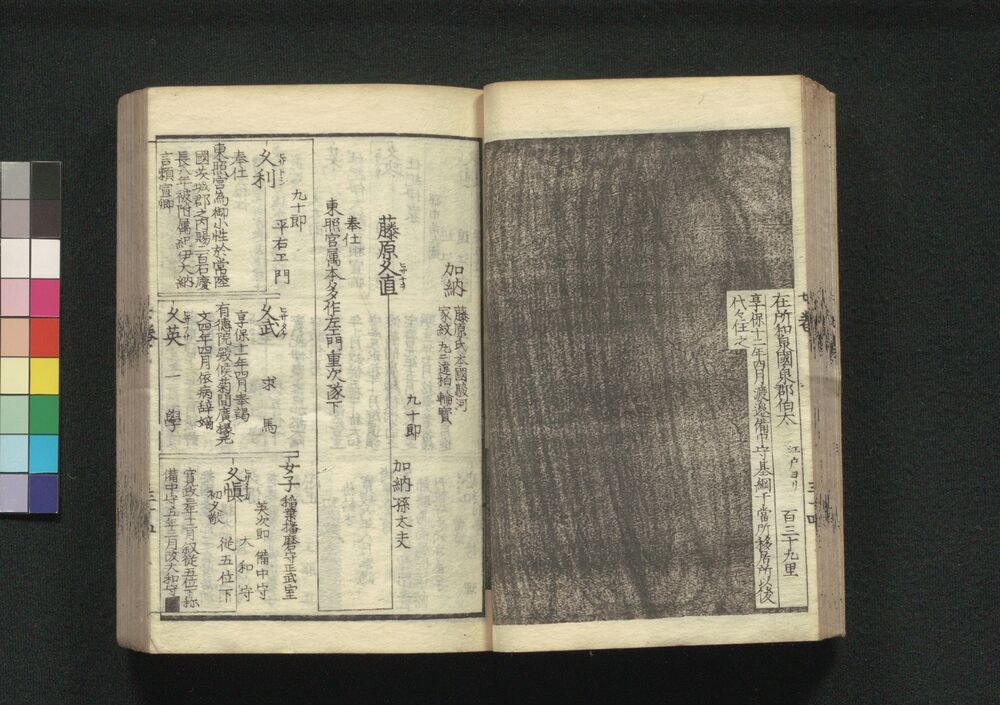 在所和泉國泉郡伯太
江戸ヨリ
百三十九里
享保十二年四月渡邉備中守基綱于當所移居所以後
代々住之
加納
藤原氏本國駿河
家紋
丸三違柏
輪寳
藤原久直
九十郎
加納孫太夫
奉仕
東照宮属本多作左エ門重次麾下
久利
九十郎
平右エ門
奉仕
東照宮為御小性於常陸
國茨城郡之内賜二百石慶
長八年被附属紀伊大納
言頼宣卿
久武
求馬
享保十一年四月奉謁
有徳院殿候菊間廣椽元
文四年四月依病辞嫡
久英
一學
女子
稲葉播磨守正武室
久慎
初久
英次郎
備中守
大和守
従五位下
寛政三年十二月叙従五位下称
備中守五年三月改大和守